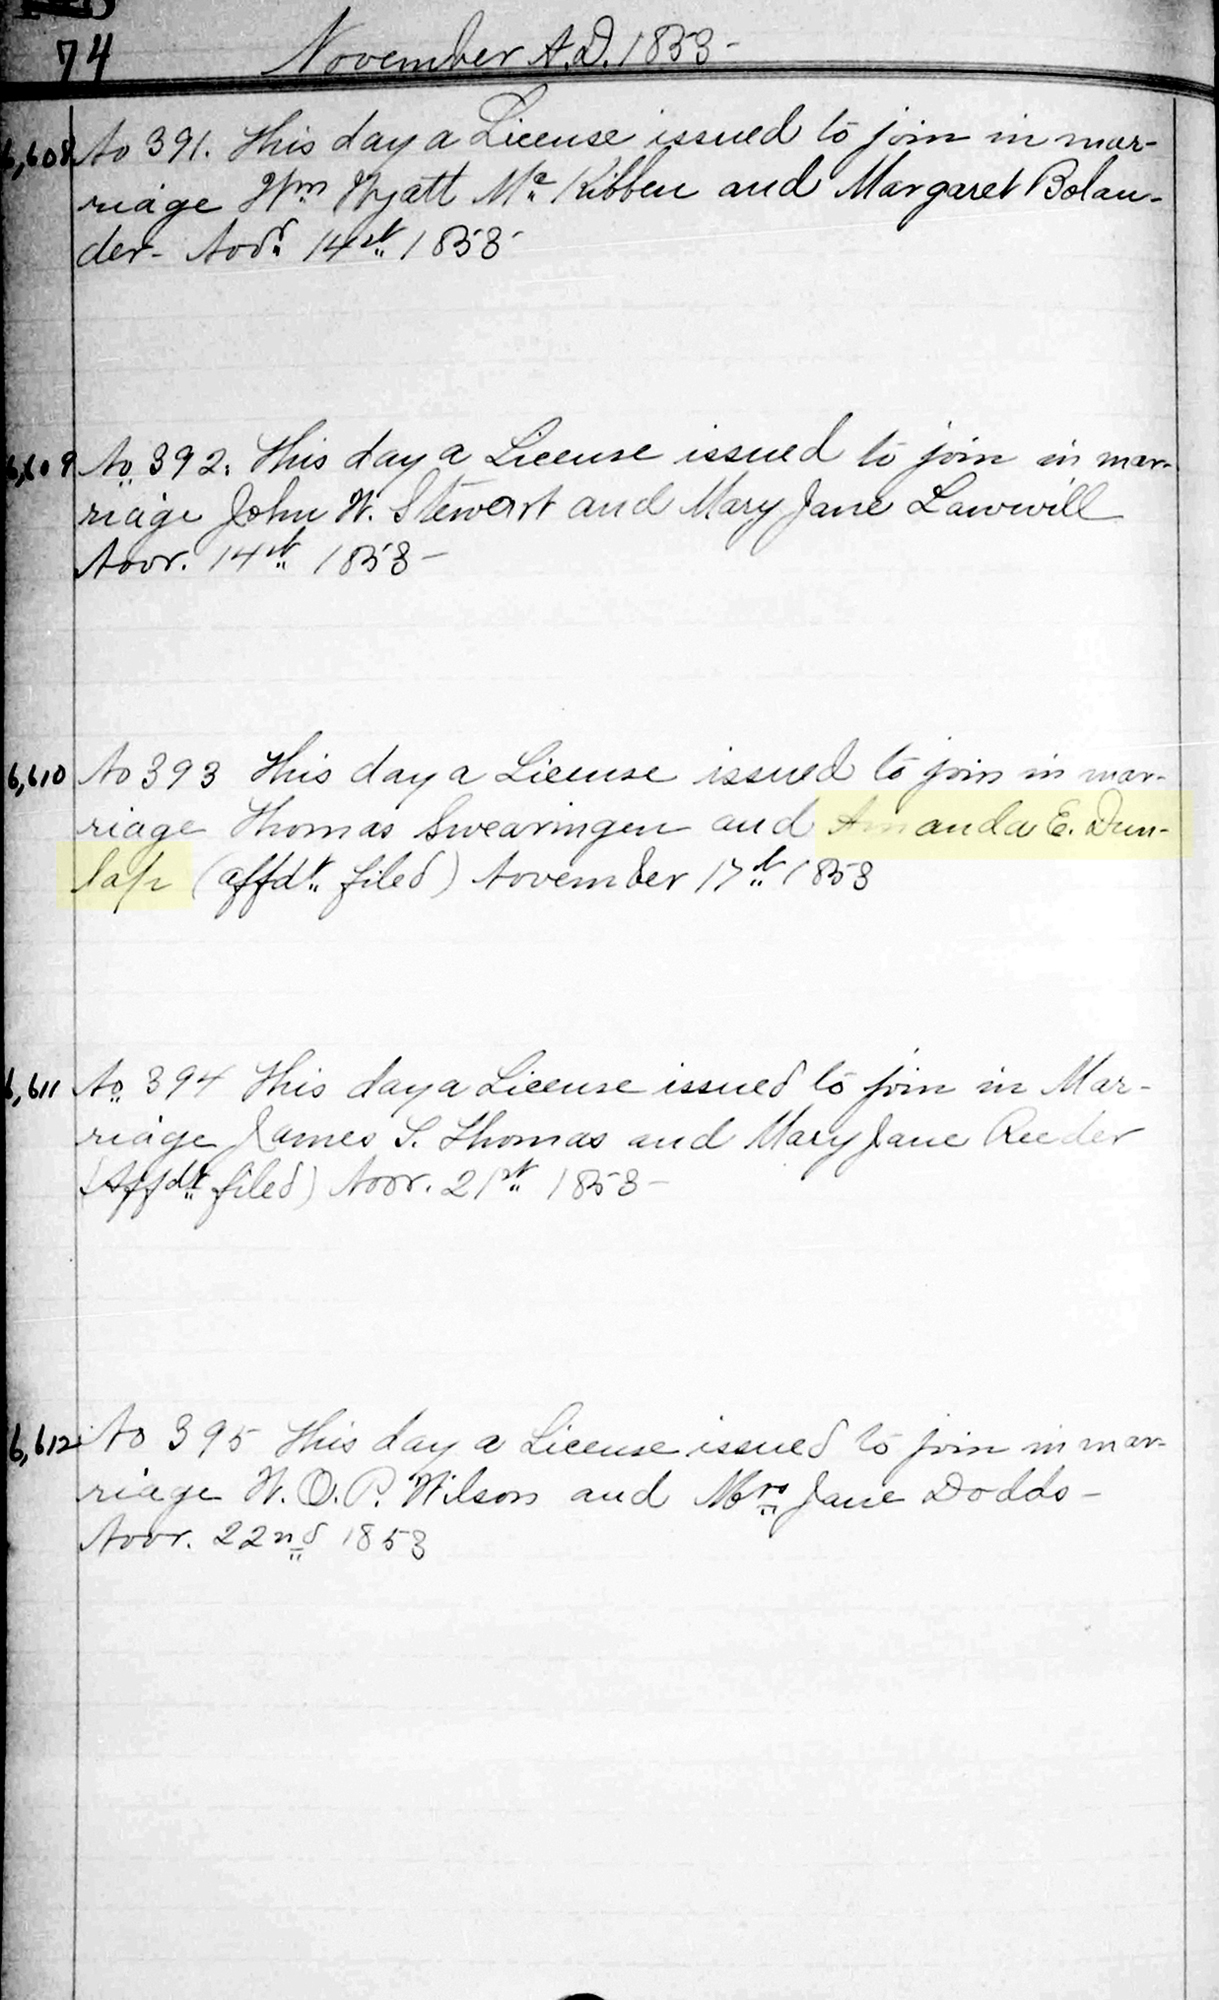 74 November A.D. 1853-
6,608 No 391. This day a License issued to join in mar-
riage Wm Wyatt Mc Kibben and Margaret Bolan-
der- Novr 14th 1853-
6,609 No 392. This day a License issued to join in mar-
riage John W. Stewart and Mary Jane Lawwill
Novr. 14th 1853-
6,610 No 393 This day a License issued to join in mar-
riage Thomas Swearingen and Amanda E. Dun-
lap (affdt filed) November 17th 1853
6,611 No 394 This day a License issued to join in Mar-
riage James S. Thomas and Mary Jane Reeder
(Affdt filed) Novr. 21st 1853-
6,612 No 395 This day a License issued to join in mar-
riage W. O. P. Wilson and Mrs Jane Dodds-
Novr. 22nd 1853